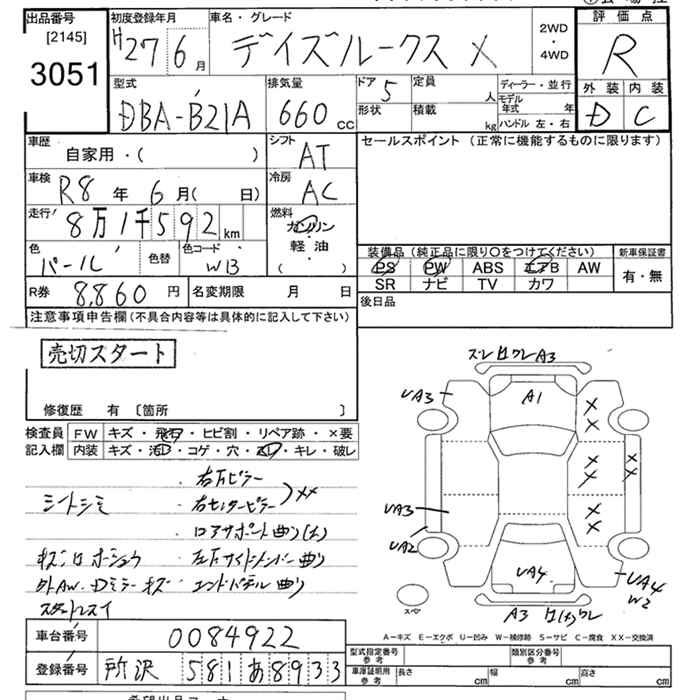 出品番号
[2145]
3051
初度登録年月
H27 6月
車名・グレード
デイズルークス X
2WD
・
4WD
評価点
R
外装 内装
D C
型式
DBA-B21A
排気量
660 CC
ドア 5
形状
定員
人
積載
kg
ディーラー・並行
モデル年式 年
ハンドル 左・右
車歴
自家用・( )
シフト
AT
セールスポイント (正常に機能するものに限ります)
車検
R8 年 6 月( 日)
冷房
AC
走行
8万1千592 km
燃料
ガソリン
・
軽油
( )
色
パール
色替
色コード
W13
装備品 (純正品に限り○をつけてください)
PS PW ABS エアB AW
SR ナビ TV カワ
新車保証書
有・無
R券 8,860 円
名変期限 月 日
後日品
注意事項申告欄 (不具合内容等は具体的に記入して下さい)
売切スタート
修復歴 有 〔箇所 〕
検査員記入欄
FW キズ・飛石・ヒビ割・リペア跡・×要
内装 キズ・汚レ・コゲ・穴・スレ・キレ・破レ
シートシミ
右センターピラー
××
キズ
左下サイドメンバー曲り
エンドパネル曲り
A3
UA3
A1
UA3
UA2
UA4
UA4
W2
スペア
A3
A－キズ E－エクボ U－凹み W－補修跡 S－サビ C－腐食 XX－交換済
車台番号 0084922
登録番号 所沢 581 あ 8933
型式指定番号 参考
類別区分番号 参考
車庫証明用 参考
長さ cm
幅 cm
高さ cm